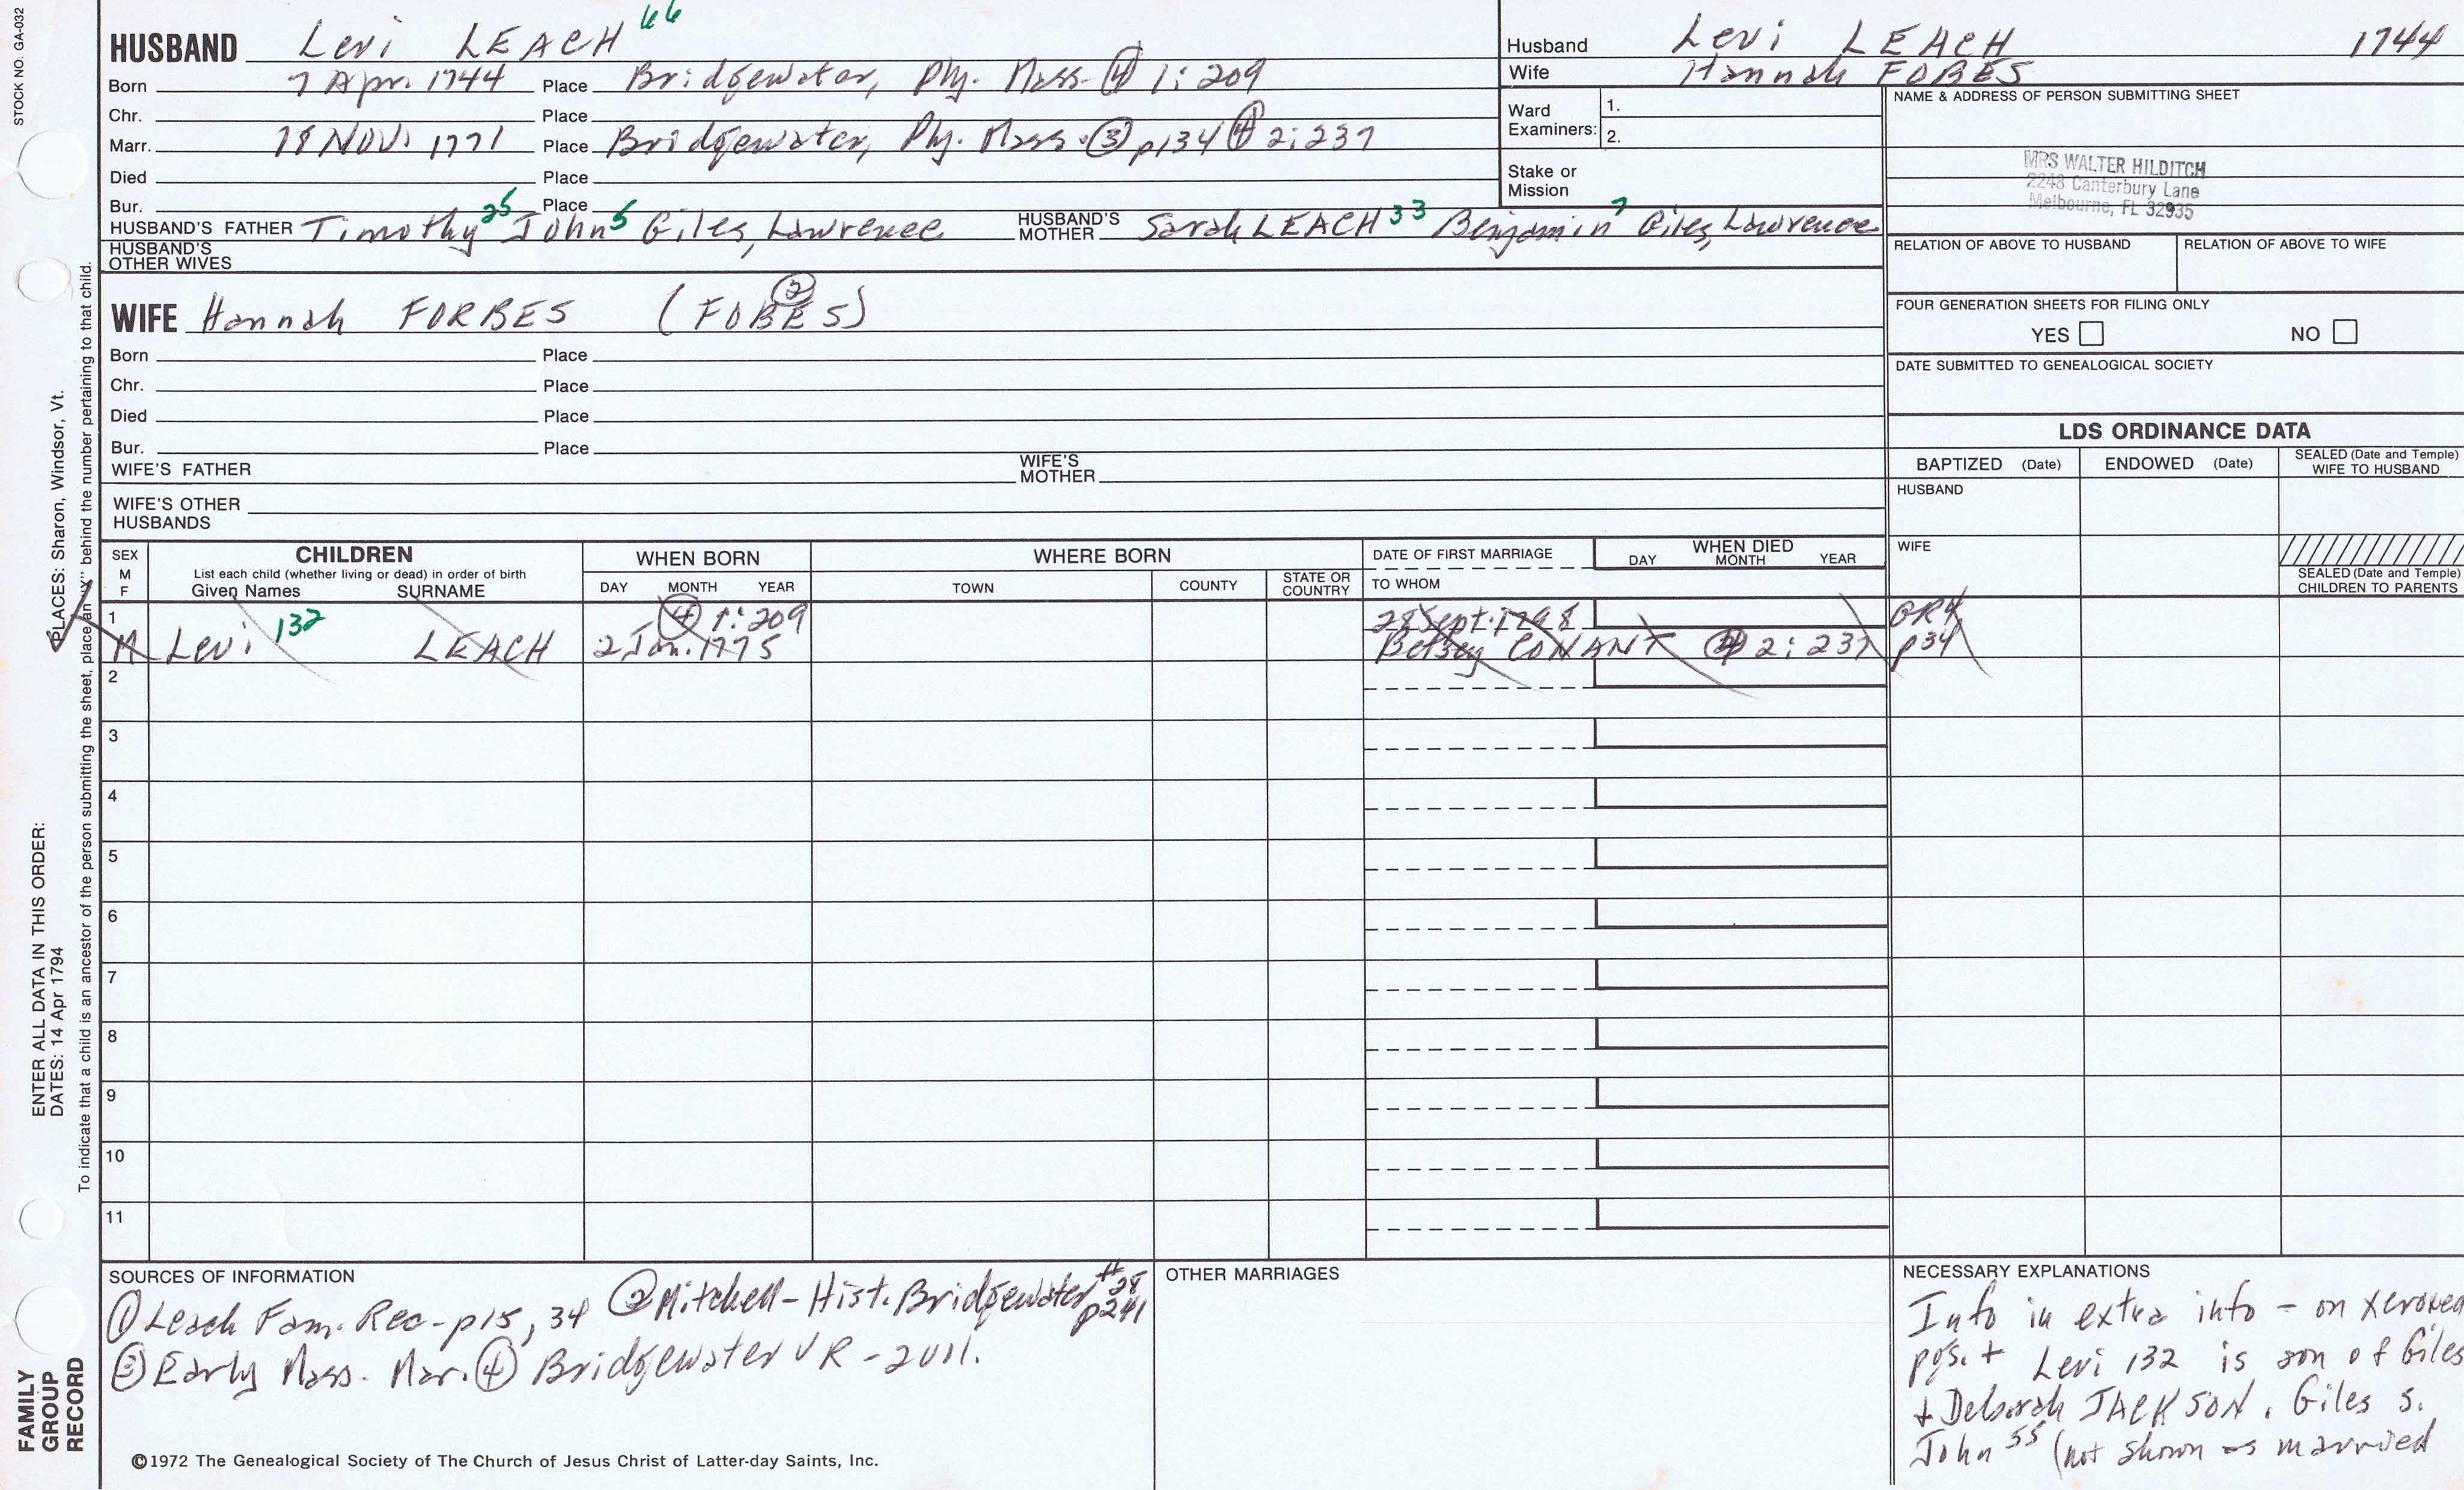 STOCK NO. GA-032
HUSBAND Levi LEACH 66
Born 7 Apr. 1744 Place Bridgewater, Ply. Mass. ④ 1:209
Chr. Place
Marr. 18 NOV. 1771 Place Bridgewater, Ply. Mass. ③ p134 ④ 2:237
Died Place
Bur. Place
HUSBAND'S FATHER Timothy 25 John 5 Giles, Lawrence HUSBAND'S MOTHER Sarah LEACH 33 Benjamin 7 Giles, Lawrence
HUSBAND'S OTHER WIVES
WIFE Hannah FORBES (FOBES) ②
Born Place
Chr. Place
Died Place
Bur. Place
WIFE'S FATHER WIFE'S MOTHER
WIFE'S OTHER HUSBANDS
Husband Levi LEACH 1744
Wife Hannah FOBES
Ward Examiners: 1.
2.
Stake or Mission
NAME & ADDRESS OF PERSON SUBMITTING SHEET
MRS WALTER HILDITCH
2248 Canterbury Lane
Melbourne, FL 32935
RELATION OF ABOVE TO HUSBAND RELATION OF ABOVE TO WIFE
FOUR GENERATION SHEETS FOR FILING ONLY
YES NO
DATE SUBMITTED TO GENEALOGICAL SOCIETY
LDS ORDINANCE DATA
BAPTIZED (Date) ENDOWED (Date) SEALED (Date and Temple) WIFE TO HUSBAND
HUSBAND
WIFE
SEALED (Date and Temple) CHILDREN TO PARENTS
SEX M F CHILDREN
List each child (whether living or dead) in order of birth
Given Names SURNAME
WHEN BORN
DAY MONTH YEAR
WHERE BORN
TOWN COUNTY STATE OR COUNTRY
DATE OF FIRST MARRIAGE
TO WHOM
WHEN DIED
DAY MONTH YEAR
1 ④ 1:209 28 Sept. 1798
M Levi 132 LEACH 2 Jan. 1775 Betsey CONANT ④ 2:237 p34
2
3
4
5
6
7
8
9
10
11
SOURCES OF INFORMATION
① Leach Fam. Rec - p15, 34 ② Mitchell - Hist. Bridgewater #28 p241
③ Early Mass. Mar. ④ Bridgewater VR - 2vol.
OTHER MARRIAGES
NECESSARY EXPLANATIONS
Info in extra info - on xeroxed
pgs. + Levi 132 is son of Giles
+ Deborah JACKSON. Giles s.
John 55 (not shown as married
©1972 The Genealogical Society of The Church of Jesus Christ of Latter-day Saints, Inc.
FAMILY GROUP RECORD
ENTER ALL DATA IN THIS ORDER:
DATES: 14 Apr 1794
PLACES: Sharon, Windsor, Vt.
To indicate that a child is an ancestor of the person submitting the sheet, place an "X" behind the number pertaining to that child.